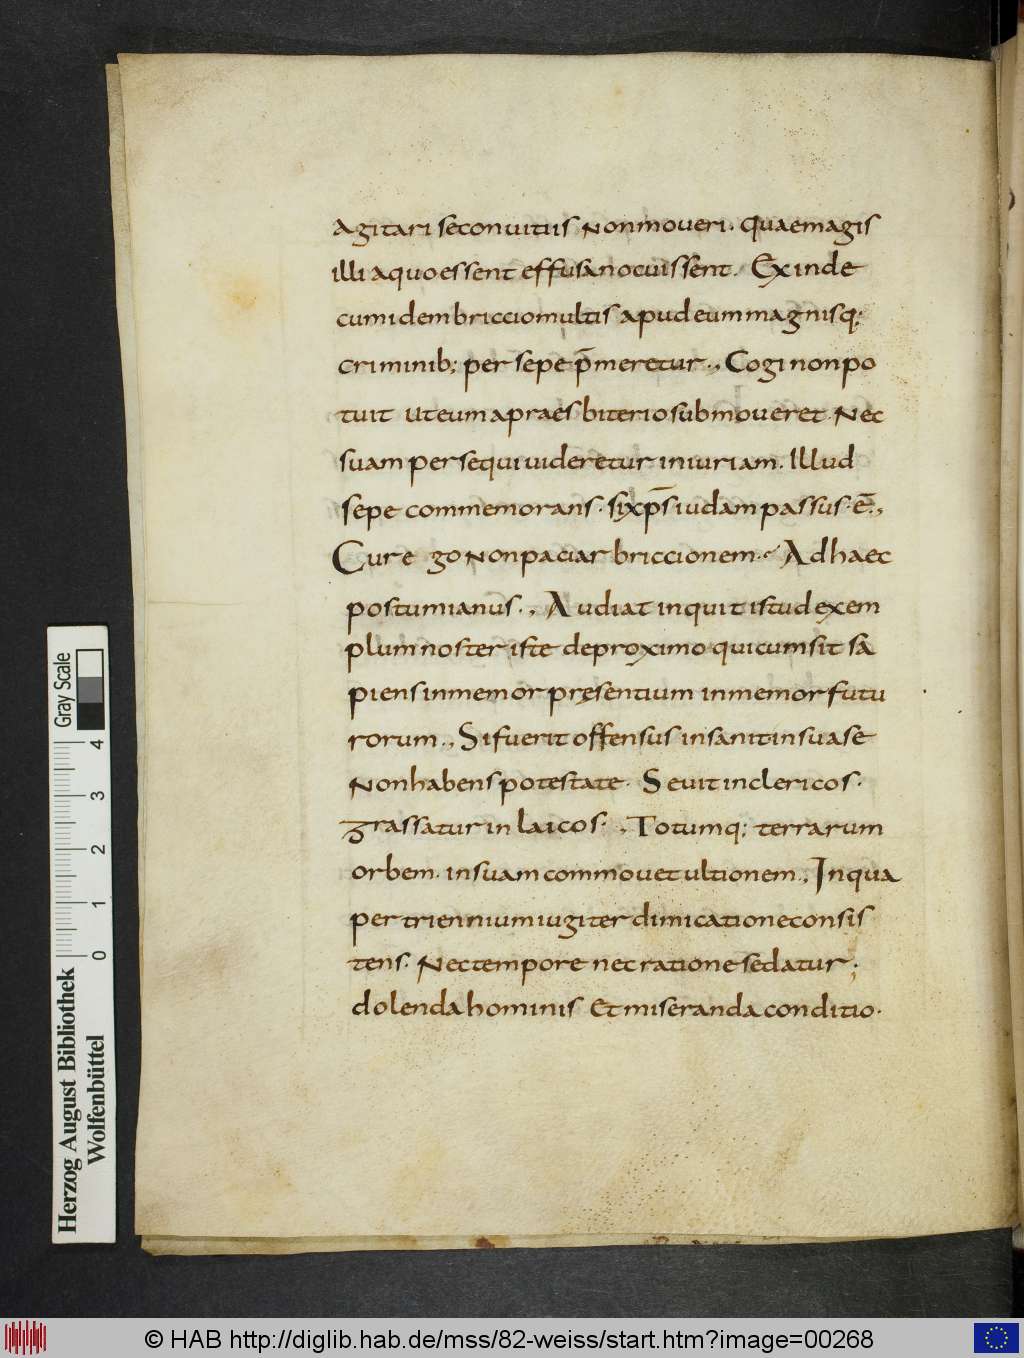 agitari se conuitiis Non moueri. quae magis
illi a quo essent effusa nocuissent. Exinde
cum idem briccio multis apud eum magnisq;
criminib; per sepe p̄meretur., Cogi non po
tuit ut eum a praesbiterio submoueret. Nec
suam persequi uideretur iniuriam. Illud
sepe commemorans. si xp̄s iudam passus. ē.,
Cur ego Non paciar briccionem. Ad haec
postumianus., Audiat inquit istud exem
plum noster iste de proximo qui cum sit sa
piens inmemor pręsentium inmemor futu
rorum., Si fuerit offensus insanit in suase
Non habens potestate. Seuit in clericos.
grassatur in laicos., Totumq; terrarum
orbem. in suam commouet ultionem., In qua
per triennium iugiter dimicatione consis
tens. Nec tempore nec ratione sedatur;
dolenda hominis Et miseranda conditio.
Gray Scale
4 3 2 1 0
Herzog August Bibliothek
Wolfenbüttel
© HAB http://diglib.hab.de/mss/82-weiss/start.htm?image=00268